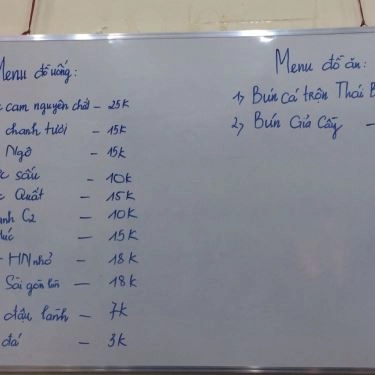 Menu đồ uống:
cam nguyên chất - 25K
chanh tươi - 15K
Ngô - 15K
sấu - 10K
Quất - 15K
C2 - 10K
- 15K
HN nhỏ - 18K
Sài gòn lùn - 18K
đậu lành - 7K
đá - 3K
Menu đồ ăn:
1, Bún cá trộn Thái B
2, Bún Giả Cầy -